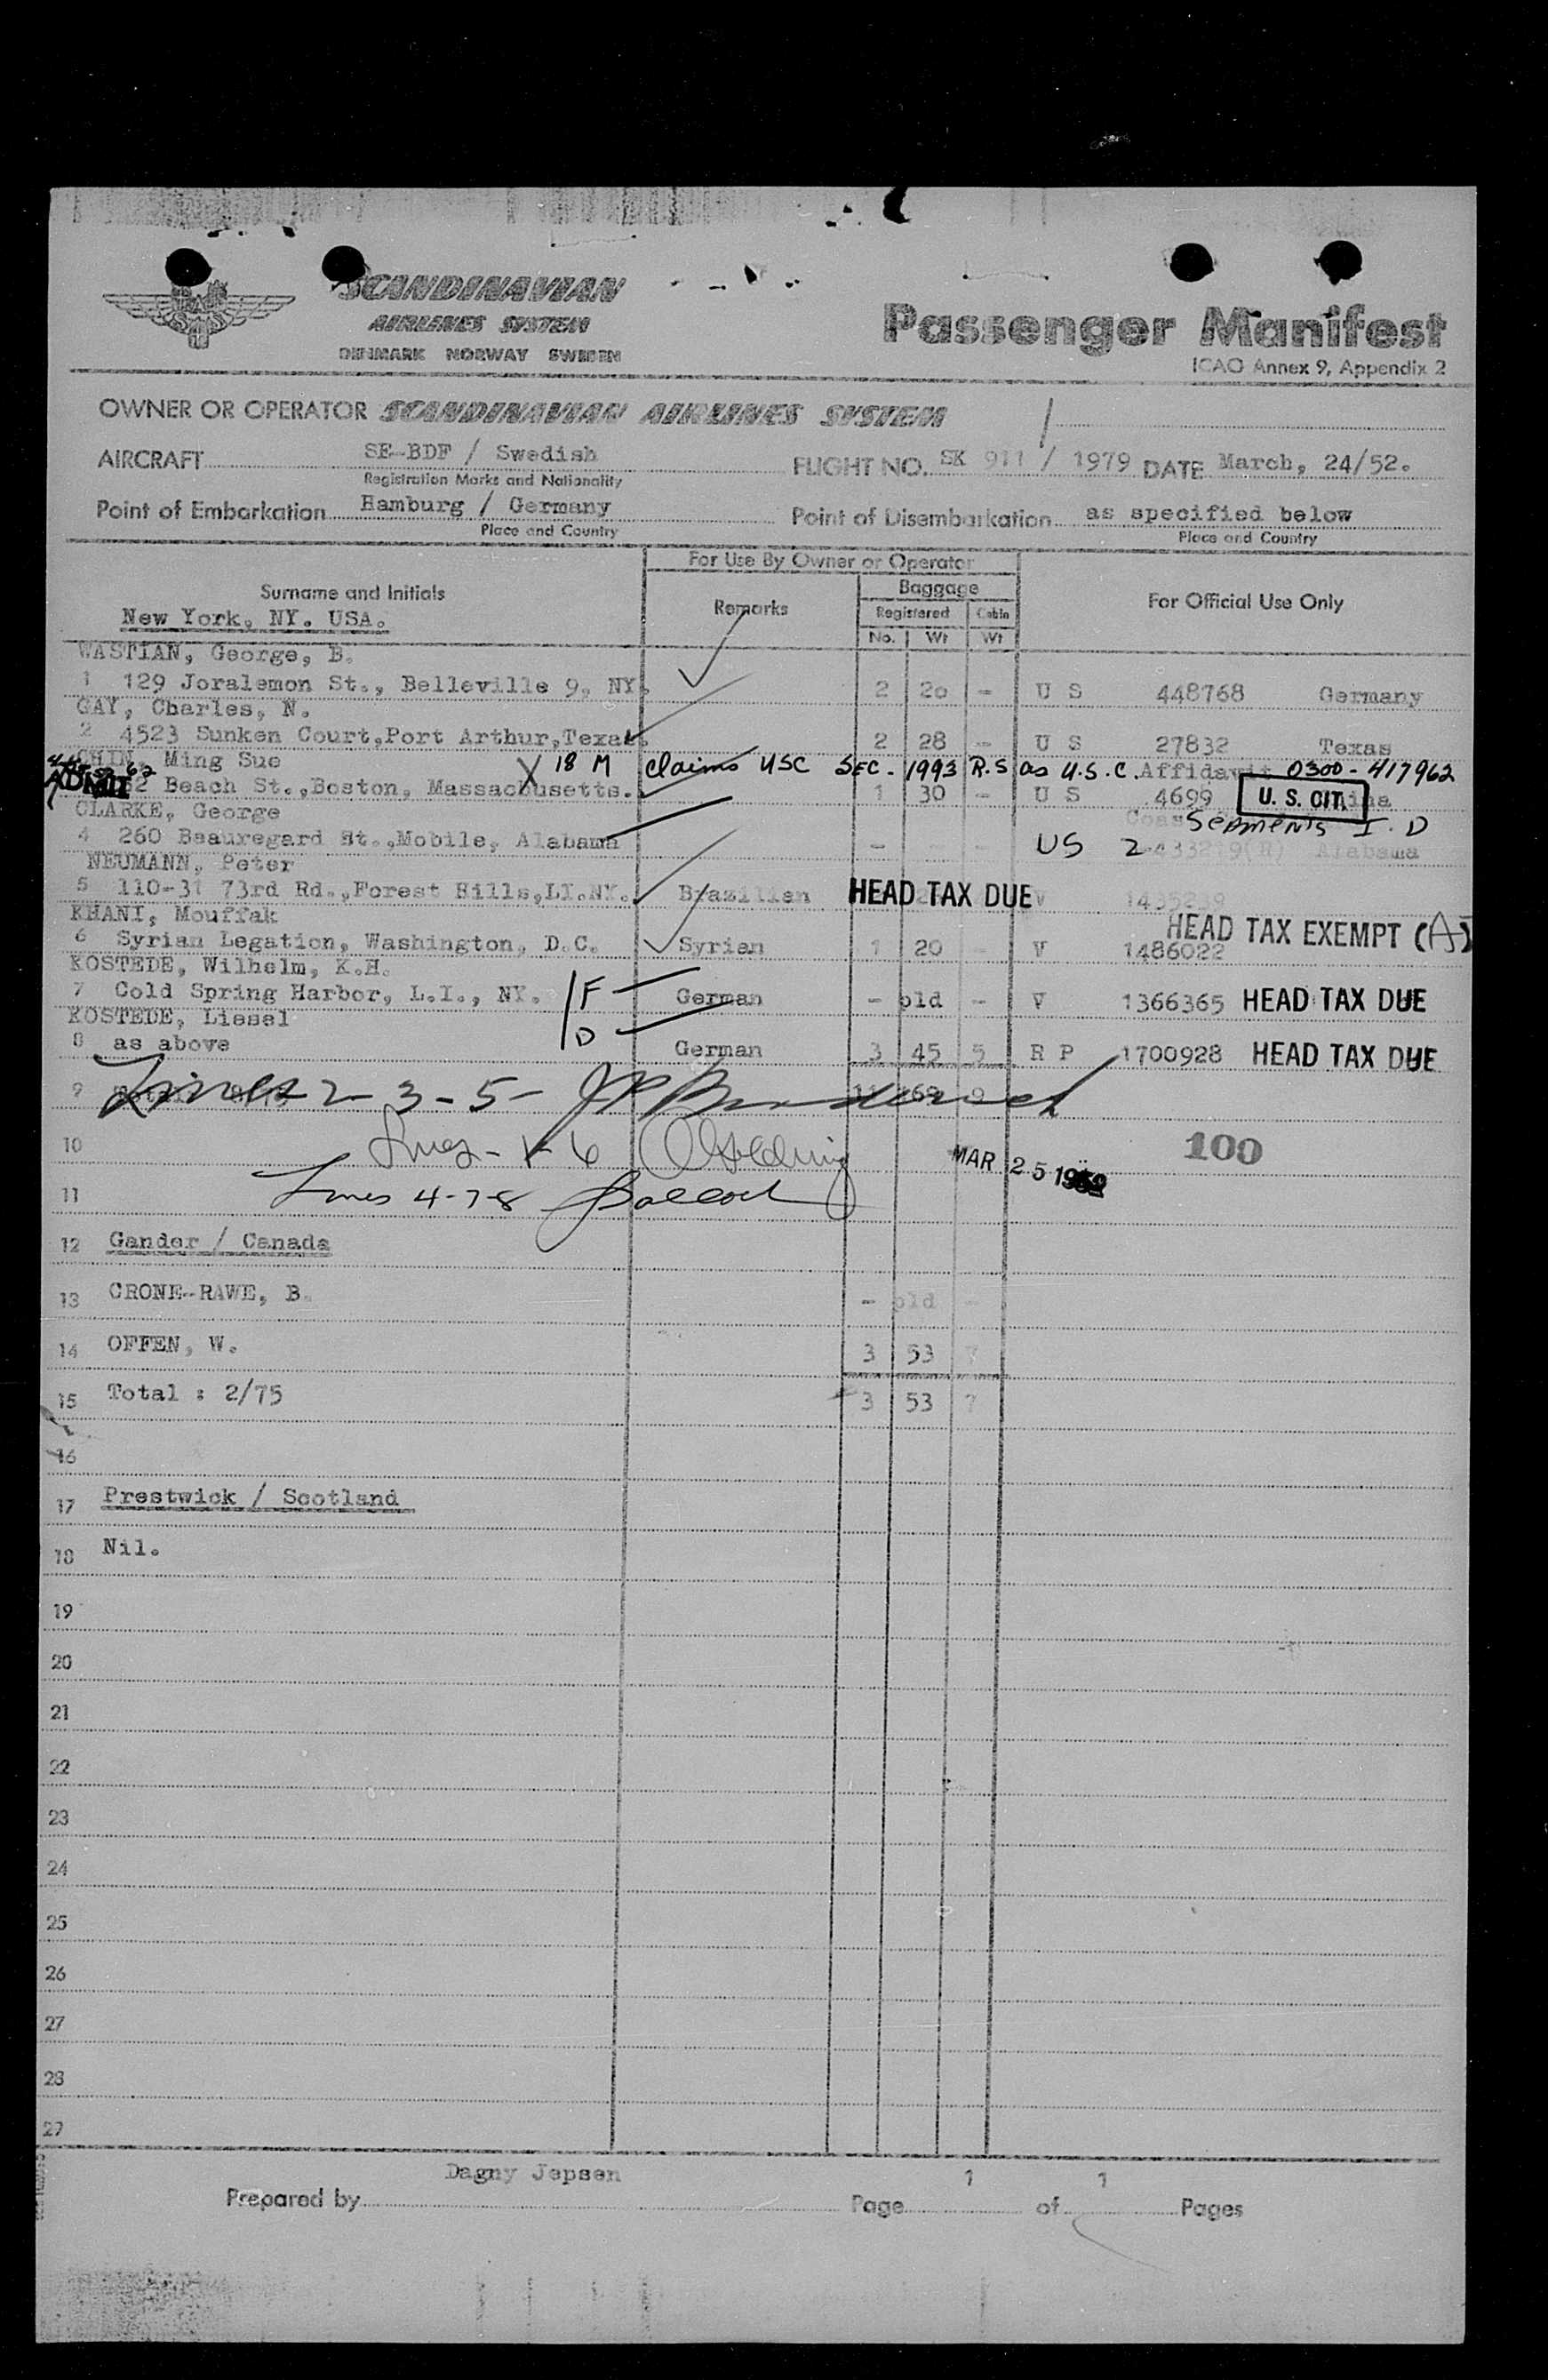 SCANDINAVIAN
AIRLINES SYSTEM
DENMARK NORWAY SWEDEN
Passenger Manifest
ICAO Annex 9, Appendix 2
OWNER OR OPERATOR SCANDINAVIAN AIRLINES SYSTEM
AIRCRAFT SE-BDF / Swedish FLIGHT NO. SK 911 / 1979 DATE March, 24/52.
Registration Marks and Nationality
Point of Embarkation Hamburg / Germany Point of Disembarkation as specified below
Place and Country Place and Country
For Use By Owner or Operator
Surname and Initials Remarks Baggage For Official Use Only
Registered Cabin
New York, NY. USA.
No. Wt Wt
WASTIAN, George, B.
1 129 Joralemon St., Belleville 9, NY. 2 20 - U S 448768 Germany
GAY, Charles, N.
2 4523 Sunken Court, Port Arthur, Texas. 2 28 - U S 27832 Texas
CHIN, Ming Sue X 18 M Claims USC SEC. 1993 R.S as U.S.C. Affidavit 0300-417962
ADMIT Beach St., Boston, Massachusetts. 1 30 - U S 4699 U. S. CIT.
CLARKE, George Seamen's I.D
4 260 Beauregard St., Mobile, Alabama - - US Alabama
NEUMANN, Peter
5 110-31 73rd Rd., Forest Hills, LI.NY. Brazilian HEAD TAX DUE V 1435239
KHANI, Mouffak HEAD TAX EXEMPT (A)
6 Syrian Legation, Washington, D.C. Syrian 1 20 - V 1486022
KOSTEDE, Wilhelm, K.H.
7 Cold Spring Harbor, L.I., NY. F German - pld - V 1366365 HEAD TAX DUE
KOSTEDE, Liesel
8 as above D German 3 45 5 R P 1700928 HEAD TAX DUE
9 Lines 2-3-5-
10 Lines - 1-6 MAR 25 1952 100
11 Lines 4-7-8
12 Gander / Canada
13 CRONE-RAWE, B. - pld -
14 OFFEN, W. 3 53 7
15 Total : 2/75 3 53 7
16
17 Prestwick / Scotland
18 Nil.
19
20
21
22
23
24
25
26
27
28
27
Prepared by Dagny Jepsen Page 1 of 1 Pages